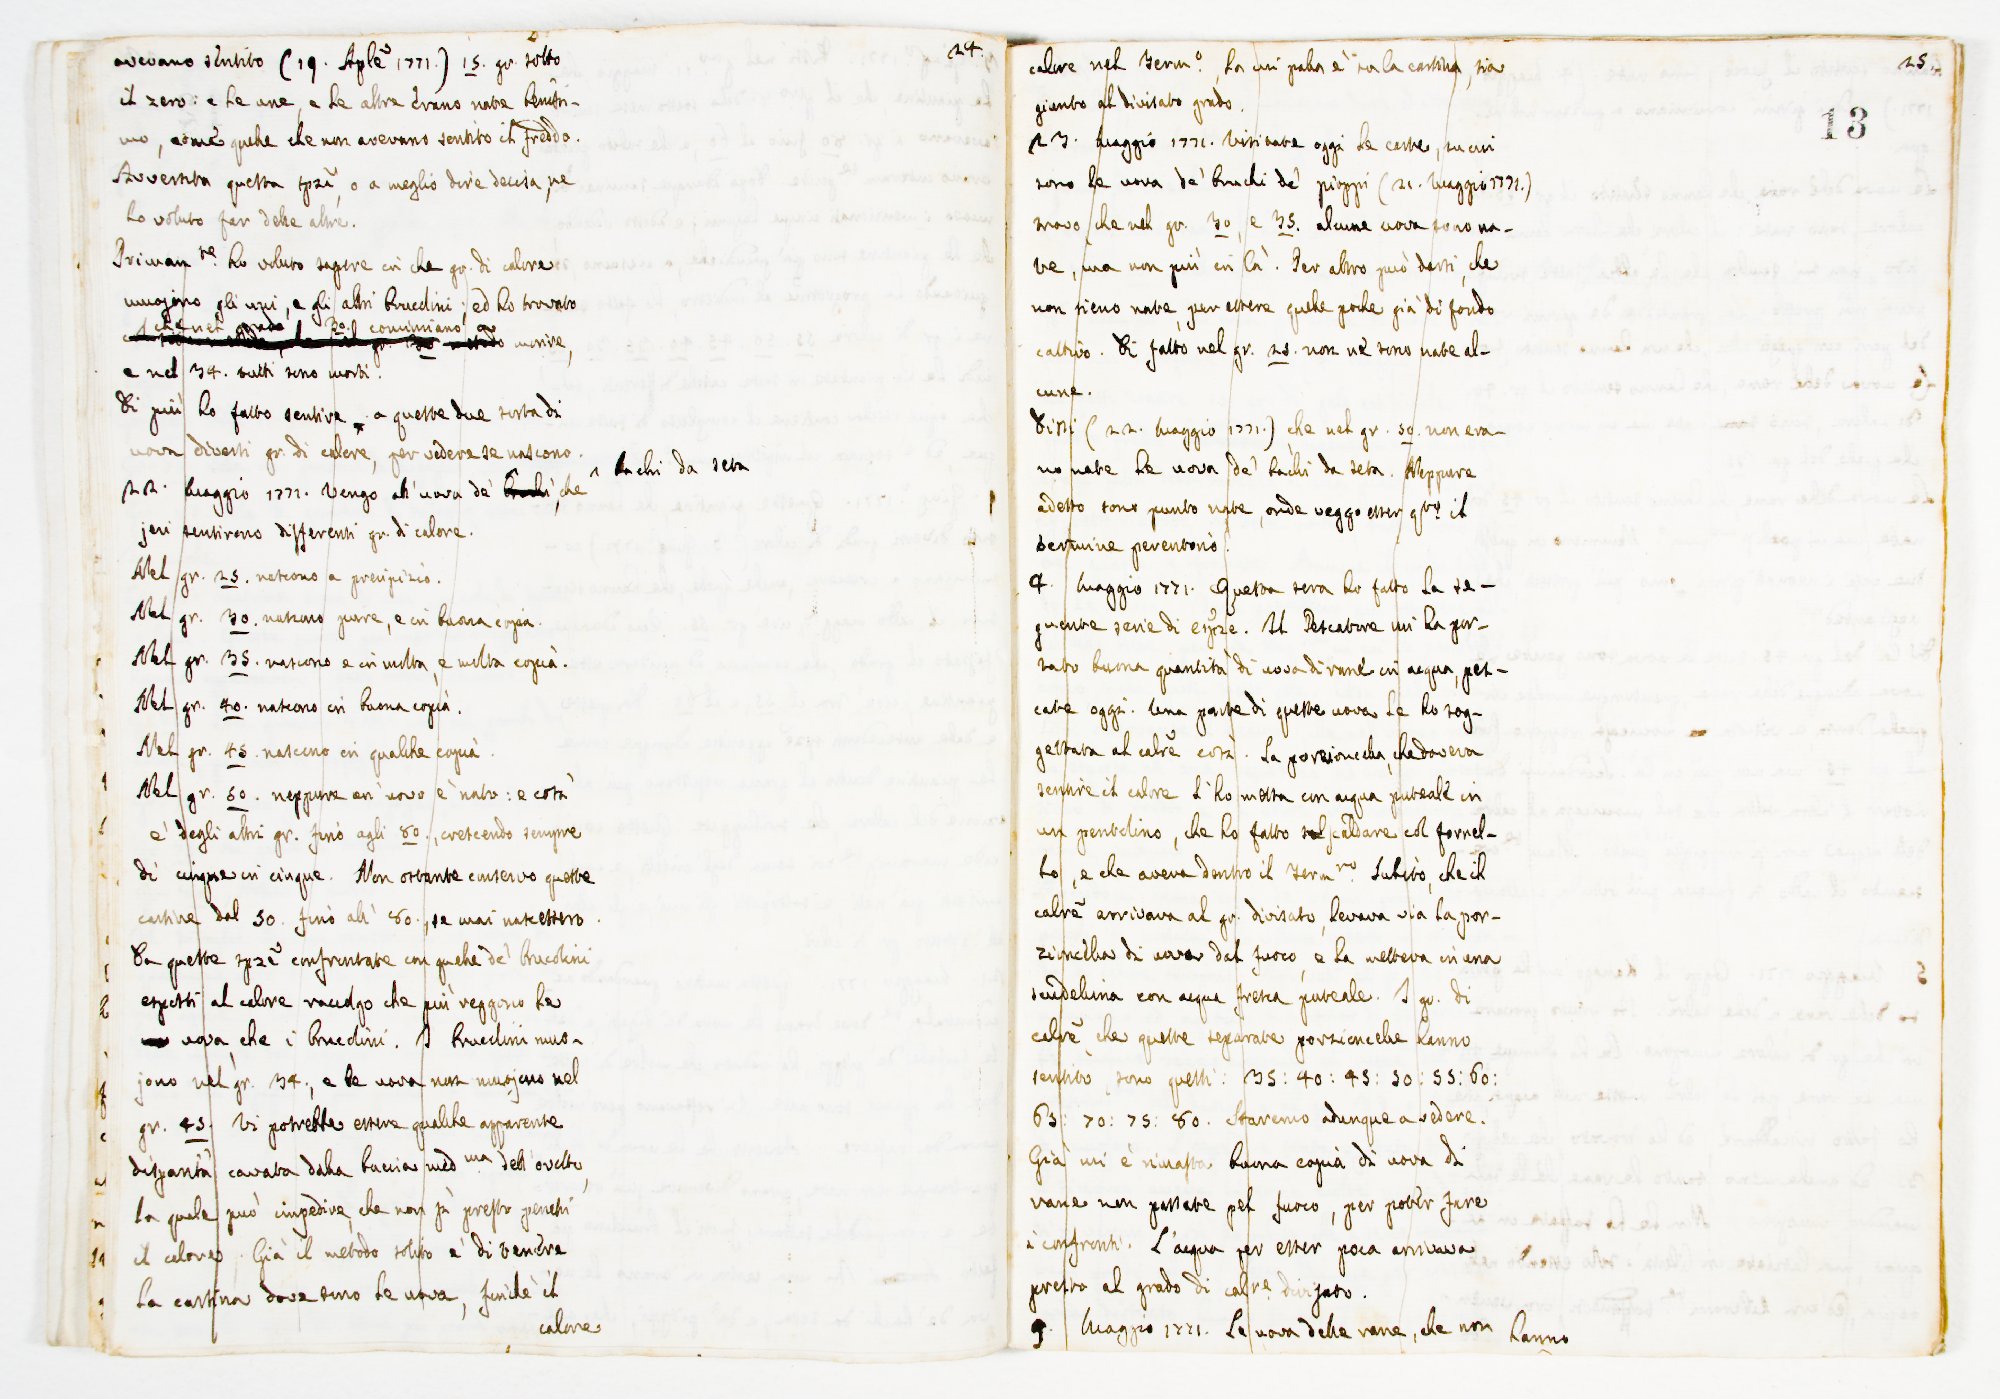 24.
avevano sentito (19. Aple 1771.) 15. gr. sotto
il zero: e le une, e le altre erano nate benissi-
mo, come quelle che non avevano sentito il freddo.
Avvertita questa spze, o a meglio dire decisa, ne
ho voluto far delle altre.
Primamte ho voluto sapere in che gr. di calore
muojono gli uni, e gli altri brucolini; ed ho trovato
che nel grado 30. cominciano a
morire,
e nel 34. tutti sono morti.
Di più ho fatto sentire a queste due sorta di
uova diversi gr. di calore, per vedere se nascono.
22. Maggio 1771. Vengo all'uova de' bruchi, che
^ bachi da seta
jeri sentirono differenti gr. di calore.
Nel gr. 25. nascono a precipizio.
Nel gr. 30. nascono pure, e in buona copia.
Nel gr. 35. nascono e in molta, e molta copia.
Nel gr. 40. nascono in buona copia.
Nel gr. 45. nascono in qualche copia.
Nel gr. 50. neppure un' uovo è nato: e così
e' degli altri gr. fino agli 80., crescendo sempre
di cinque in cinque. Non ostante conservo queste
cartine dal 50. fino all' 80., se mai nascessero.
Da queste spze confrontate con quelle de' brucolini
esposti al calore raccolgo che più reggono le
uova, che i brucolini. I brucolini muo-
jono nel gr. 34., e le uova non muojono nel
gr. 45. Vi potrebbe essere qualche apparente
disparità cavata dalla buccia medma dell'ovetto,
la quale può impedire, che non sì presto penetri
il calore. Già il metodo solito è di tenere
la cartina dove sono le uova, finchè il
calore
25.
13
calore nel Termo., la cui palla è su la cartina, sia
giunto al divisato grado.
23. Maggio 1771. Visitate oggi le carte, su cui
sono le uova de' bruchi de' pioppi (21. Maggio 1771.)
trovo, che nel gr. 30, e 35. alcune uova sono na-
te, ma non più in là. Per altro può darsi, che
non sieno nate, per essere quelle poche già di fondo
cattivo. Di fatto nel gr. 25. non ne sono nate al-
cune.
Dissi (22. Maggio 1771.) che nel gr. 50. non era-
no nate le uova de' bachi da seta. Neppure
adesso sono punto nate, onde veggo esser qto il
termine perentorio.
4. Maggio 1771. Questa sera ho fatto la se-
guente serie di espze. Il Pescatore mi ha por-
tato buona quantità di uova di rane in acqua, pes-
cate oggi. Una parte di queste uova le ho sog-
gettata al calre così. La porzioncella, che doveva
sentire il calore l'ho messa con acqua puteale in
un pentolino, che ho fatto scaldare col fornel-
lo, e che aveva dentro il Termro. Subito, che il
calre arrivava al gr. divisato, levava via la por-
zioncella di uova dal fuoco, e la metteva in una
scudellina con acqua fresca puteale. I gr. di
calre che queste separate porzioncelle hanno
sentito, sono questi: 35: 40: 45: 50: 55: 60:
65: 70: 75: 80. Staremo adunque a vedere.
Già mi è rimasta buona copia di uova di
rane non passate pel fuoco, per poter fare
i confronti. L'acqua per esser poca arrivava
presto al grado di calre divisato.
9. Maggio 1771. Le uova delle rane, che non hanno